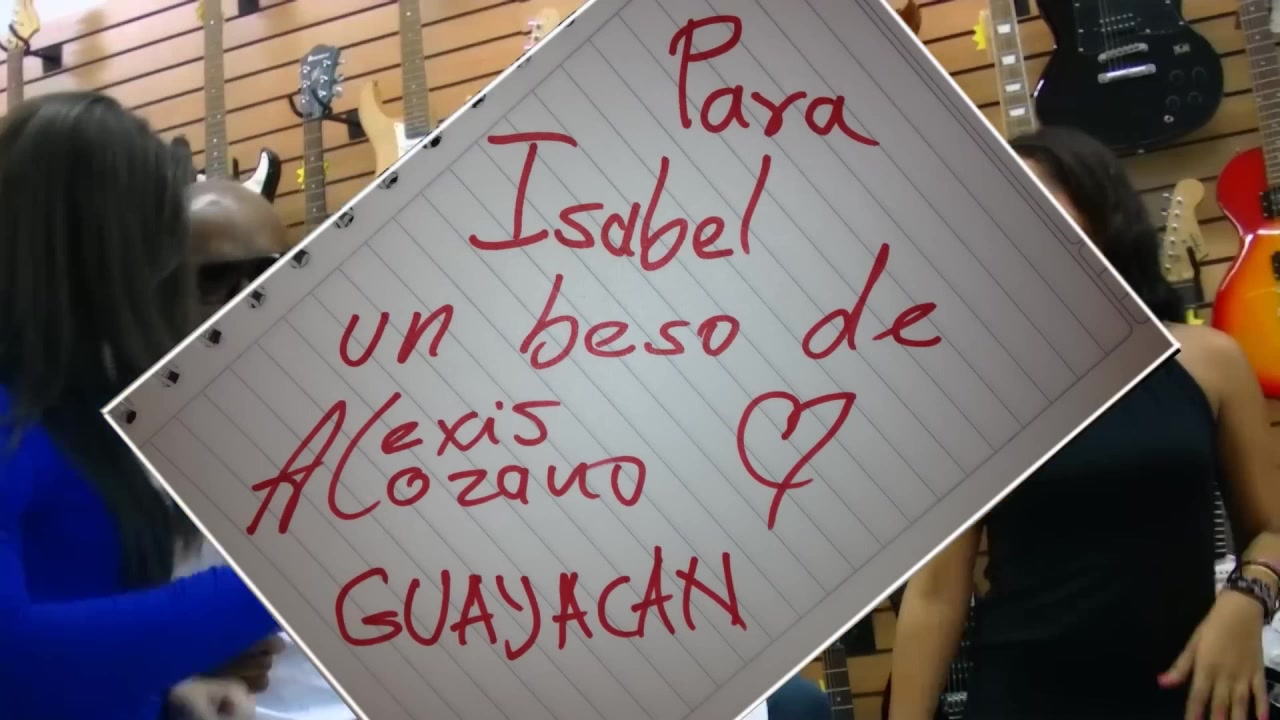 Para
Isabel
un beso de
Alexis
Lozano
GUAYACAN